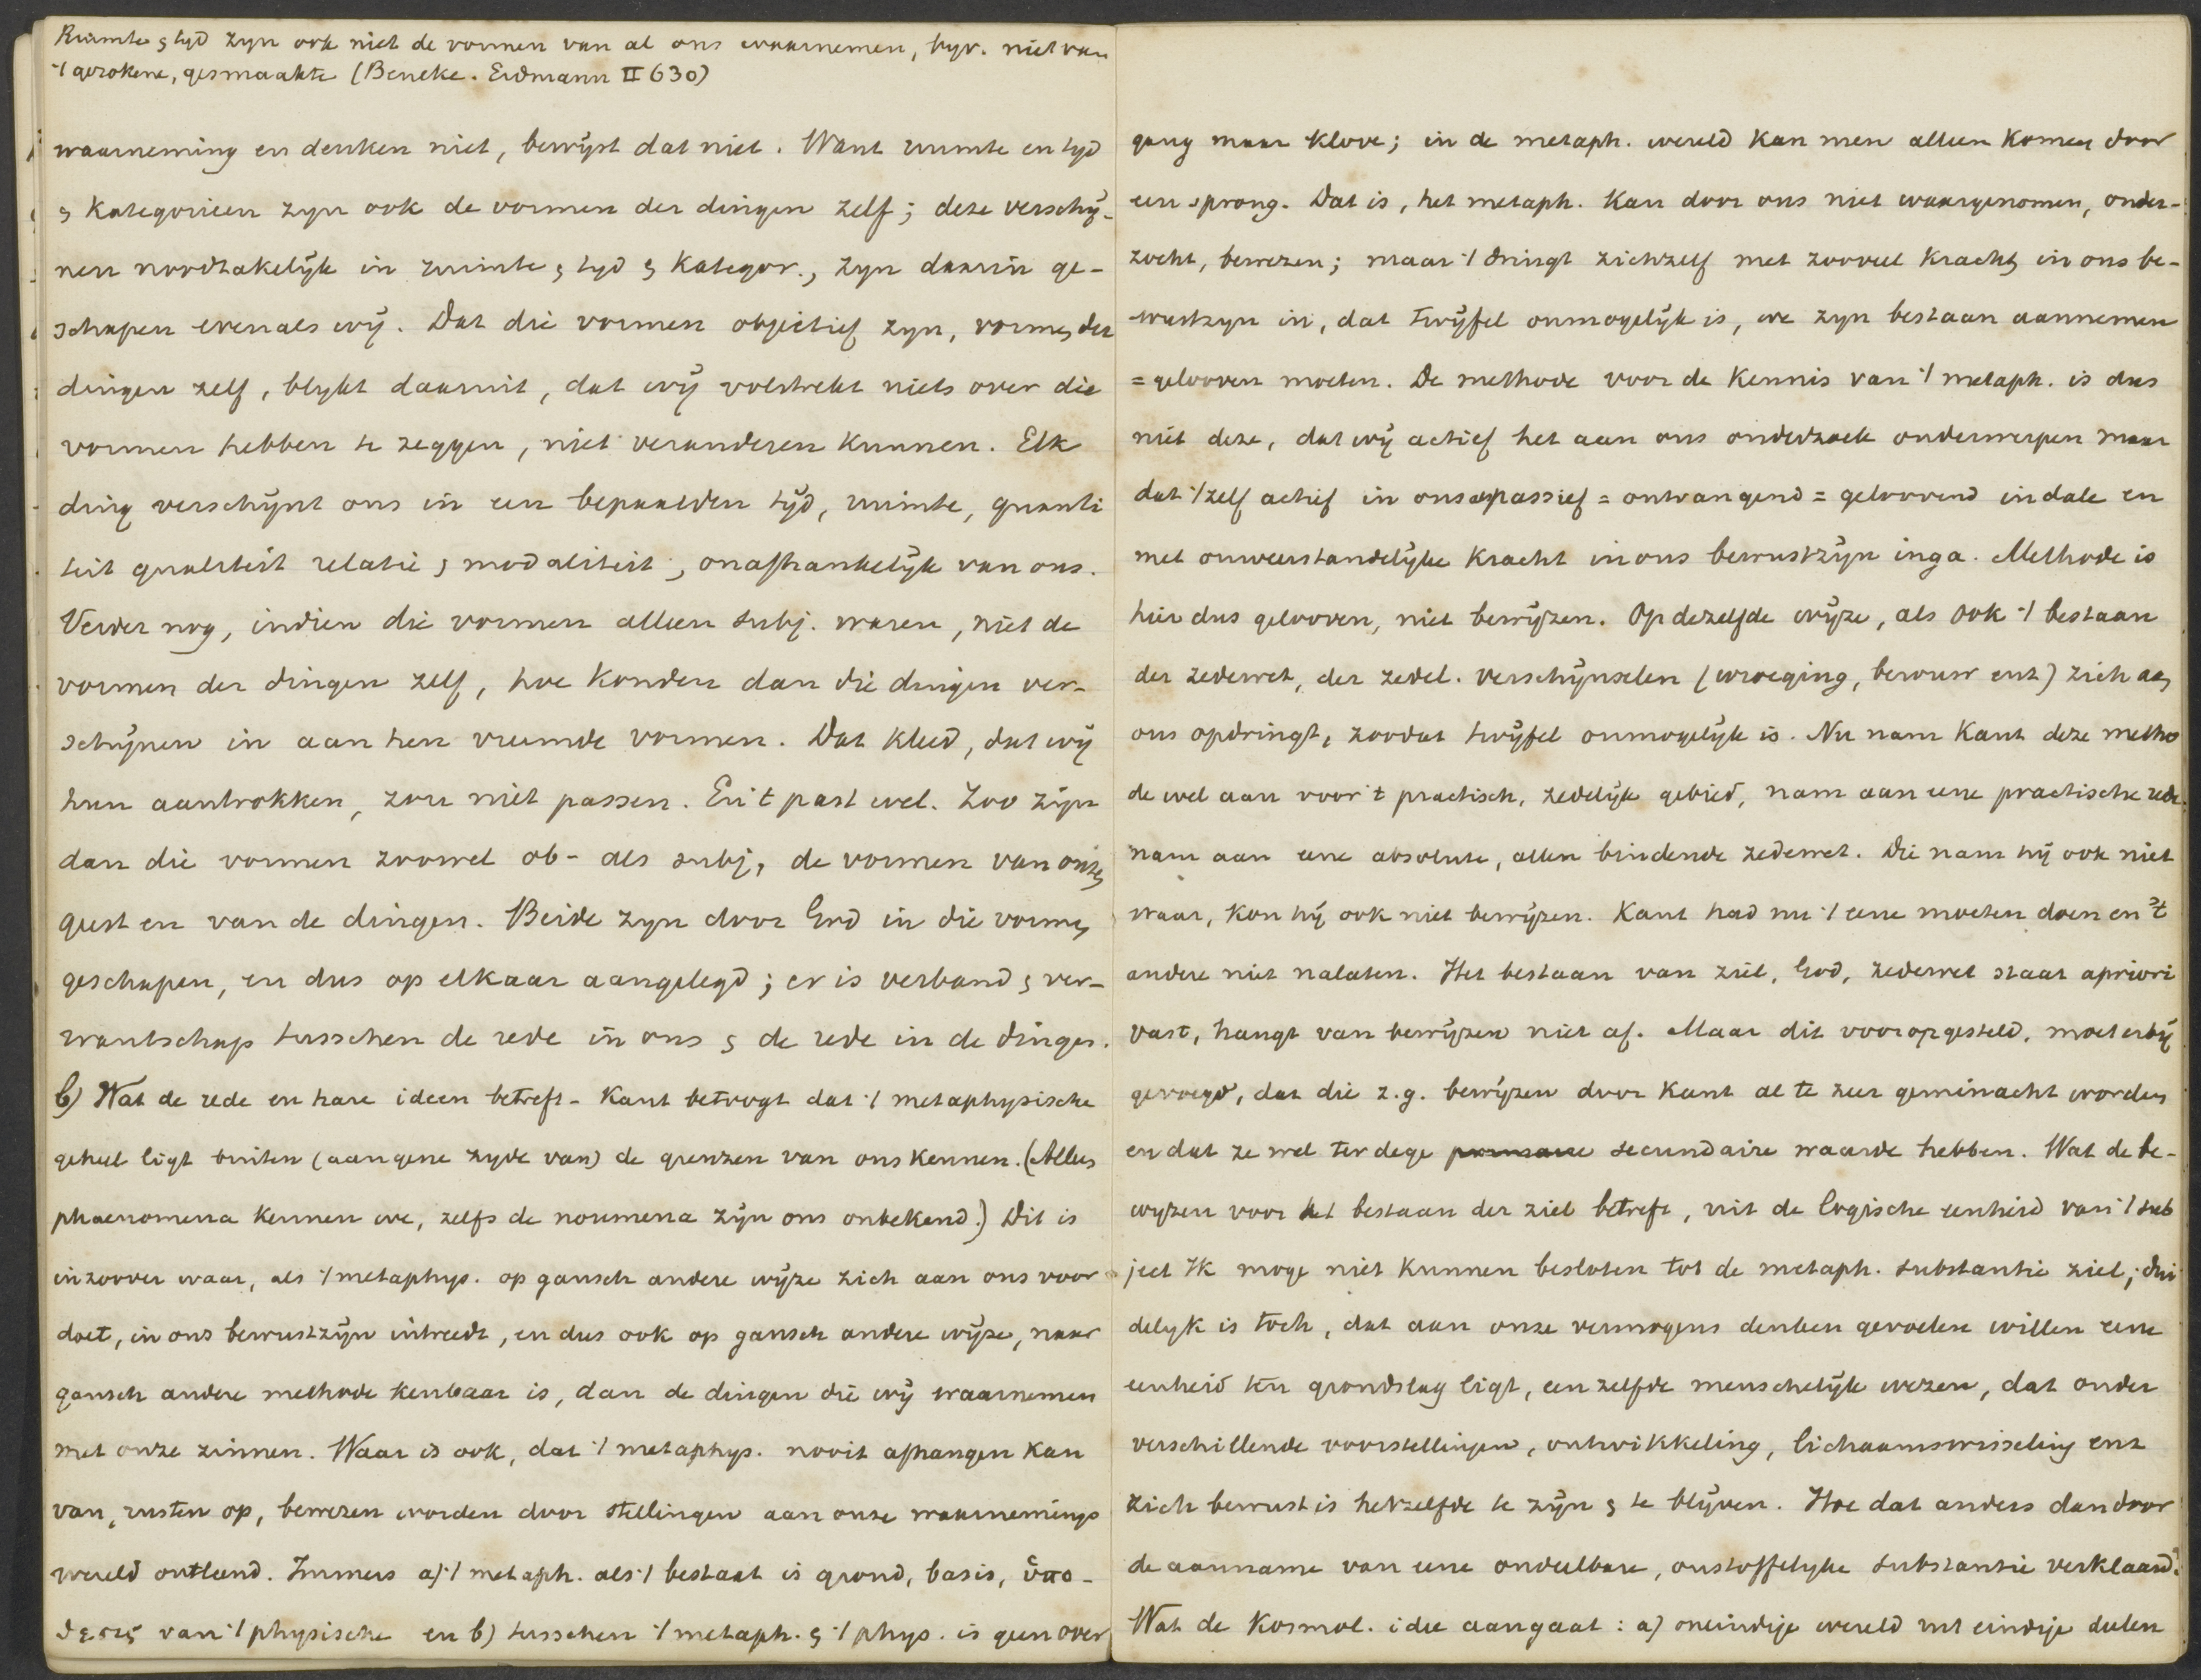 Ruimte & tyd zyn ook niet de vormen van al ons waarnemen, byv. niet van
't gerokene, gesmaakte (Beneke. Erdmann II 630)
waarneming en denken niet, bewijst dat niet. Want ruimte en tyd
& kategorieen zyn ook de vormen der dingen zelf; deze verschij-
nen noodzakelijk in ruimte & tyd & kategor., zyn daarin ge-
schapen evenals wij. Dat die vormen objectief zyn, vormen der
dingen zelf, blykt daaruit, dat wij volstrekt niets over die
vormen hebben te zeggen, niet veranderen kunnen. Elk
ding verschijnt ons in een bepaalden tijd, ruimte, quanti
teit qualiteit relatie & modaliteit, onafhankelijk van ons.
Verder nog, indien die vormen alleen subj. waren, niet de
vormen der dingen zelf, hoe konden dan die dingen ver-
schijnen in aan hen vreemde vormen. Dat kleed, dat wij
hun aantrokken, zou niet passen. En 't past wel. Zoo zijn
dan die vormen zoowel ob- als subj, de vormen van onzen
geest en van de dingen. Beide zyn door God in die vormen
geschapen, en dus op elkaar aangelegd; er is verband & ver-
wantschap tusschen de rede in ons & de rede in de dingen.
b) Wat de rede en hare ideen betreft - Kant betoogt dat 't metaphysische
geheel ligt buiten (aan gene zyde van) de grenzen van ons kennen. (Alleen
phaenomena kennen we, zelfs de noumena zijn ons onbekend.) Dit is
inzoover waar, als 't metaphys. op gansch andere wijze zich aan ons voor
doet, in ons bewustzijn intreedt, en dus ook op gansch andere wijze, naar
gansch andere methode kenbaar is, dan de dingen die wij waarnemen
met onze zinnen. Waar is ook, dat 't metaphys. nooit afhangen kan
van, rusten op, bewezen worden door stellingen aan onze waarnemings
wereld ontleend. Immers a) 't metaph. als 't bestaat is grond, basis, ὑπο-
θεσις van 't physische en b) tusschen 't metaph. & 't phys. is geen over
gang maar klove; in de metaph. wereld kan men alleen komen door
een sprong. Dat is, het metaph. kan door ons niet waargenomen, onder-
zocht, bewezen; maar 't dringt zichzelf met zooveel kracht in ons be-
wustzyn in, dat twijfel onmogelijk is, we zyn bestaan aannemen
= gelooven moeten. De methode voor de kennis van 't metaph. is dus
niet deze, dat wij actief het aan ons onderzoek onderwerpen maar
dat 't zelf actief in ons passief = ontvangend = geloovend indale en
met onweerstandelijke kracht in ons bewustzijn inga. Methode is
hier dus gelooven, niet bewijzen. Op dezelfde wijze, als ook 't bestaan
der zedewet, der zedel. verschijnselen (wroeging, berouw enz) zich aan
ons opdringt, zoodat twijfel onmogelijk is. Nu nam Kant deze metho
de wel aan voor 't practisch, zedelijk gebied, nam aan eene practische rede
nam aan eene absolute, allen bindende zedewet. Die nam hij ook niet
waar, kon hij ook niet bewijzen. Kant had nu 't eene moeten doen en 't
andere niet nalaten. Het bestaan van ziel, God, zedewet staat apriori
vast, hangt van bewijzen niet af. Maar dit vooropgesteld, moet erbij
gevoegd, dat die z.g. bewijzen door Kant al te zeer geminacht worden
en dat ze wel terdege secundaire waarde hebben. Wat de be-
wyzen voor het bestaan der ziel betreft, uit de logische eenheid van 't sub
ject Ik moge niet kunnen besloten tot de metaph. substantie ziel; dui
delyk is toch, dat aan onze vermogens denken gevoelen willen eene
eenheid ten grondslag ligt, eenzelfde menschelijk wezen, dat onder
verschillende voorstellingen, ontwikkeling, lichaamswisseling enz
zich bewust is hetzelfde te zijn & te blijven. Hoe dat anders dan door
de aanname van eene ondeelbare, onstoffelyke substantie verklaard?
Wat de kosmol. idee aangaat: a) oneindige wereld uit eindige deelen